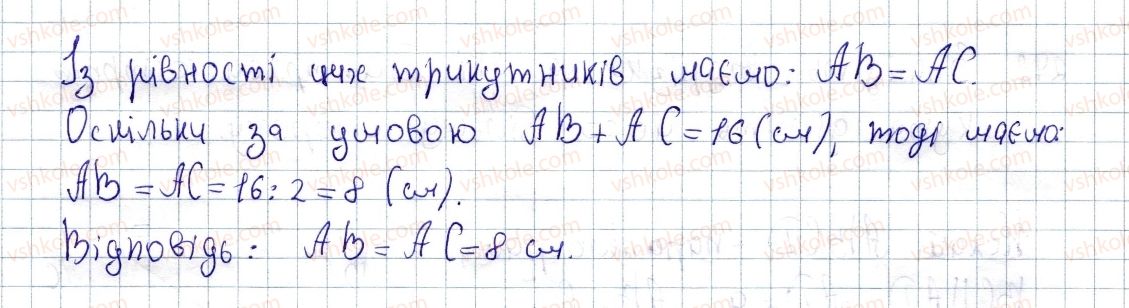 Із рівності цих трикутників маємо: AB = AC.
Оскільки за умовою AB + AC = 16 (см), тоді маємо:
AB = AC = 16 : 2 = 8 (см).
Відповідь: AB = AC = 8 см.